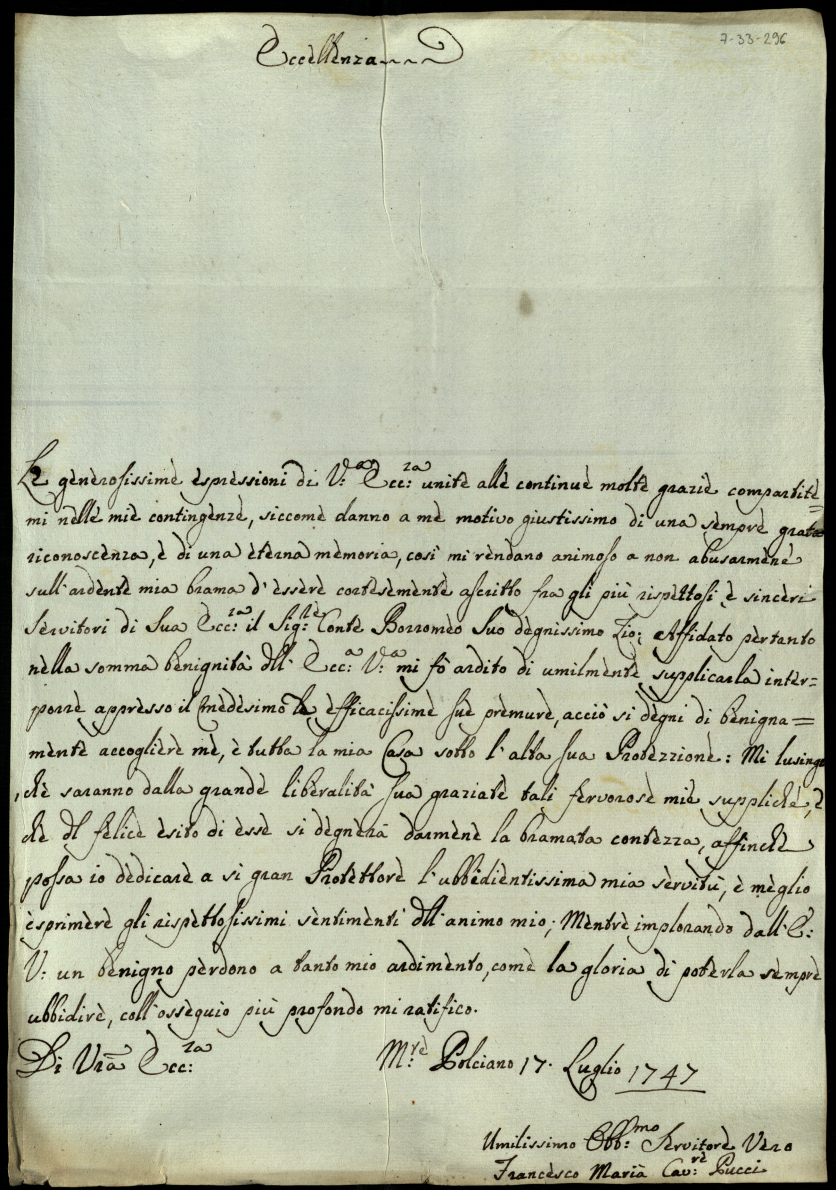 7-33-296
Eccellenza
Le generosissime espressioni di V.ª Ecc.za unite alle continue molte grazie compartite=
mi nelle mie contingenze, siccome danno a me motivo giustissimo di una sempre grata
riconoscenza, e di una eterna memoria, così mi rendano animoso a non abusarmene
sull'ardente mia brama d'essere cortesemente ascritto fra gli più rispettosi e sinceri
Servitori di Sua Ecc.za il Sig.re Conte Borromeo Suo degnissimo Zio; Affidato pertanto
nella somma benignità dll' Ecc.ª V.ª mi fò ardito di umilmente supplicarla inter=
porre appresso il medesimo le efficacissime sue premure, acciò si degni di benigna=
mente accogliere me, e tutta la mia Casa sotto l'alta sua Protezzione: Mi lusingo
, che saranno dalla grande liberalità sua graziate tali fervorose mie suppliche, e
che dl felice esito di esse si degnerà darmene la bramata contezza, affinche
possa io dedicare a si gran Protettore l'ubbidientissima mia servitù, e meglio
esprimere gli rispettosissimi sentimenti dll'animo mio; Mentre implorando dall'E:
V: un benigno perdono a tanto mio ardimento, come la gloria di poterla sempre
ubbidire, coll'ossequio più profondo mi ratifico.
Di Vrã Ecc:za M:re Polciano 17. Luglio 1747
Umilissimo Obb:mo Servitore Vero
Francesco Maria Cav:re Pucci